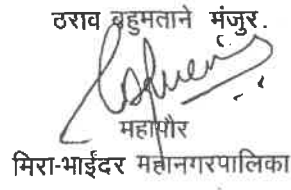 ठराव बहुमताने मंजुर.
महापौर
मिरा-भाईंदर महानगरपालिका